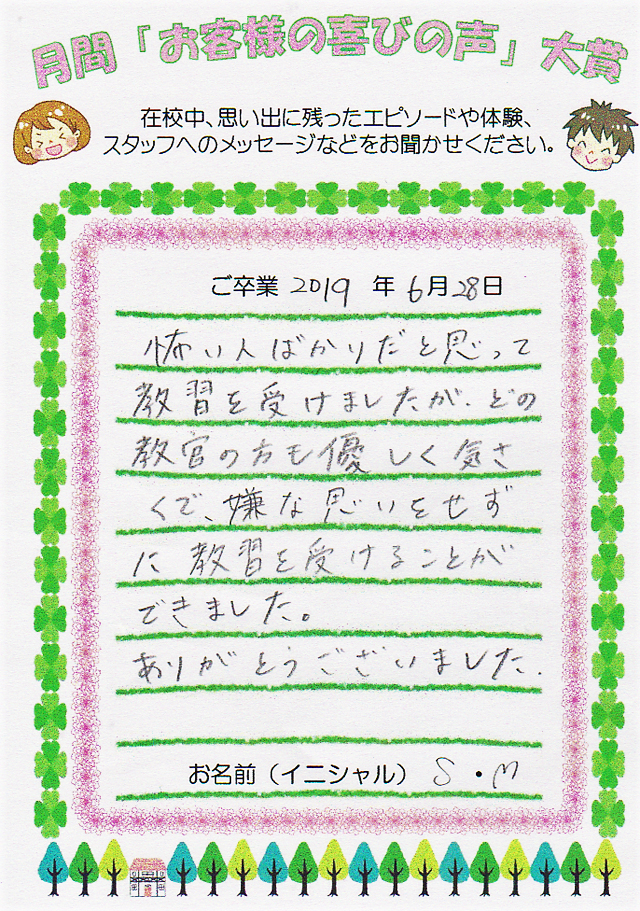 月間「お客様の喜びの声」大賞
在校中、思い出に残ったエピソードや体験、
スタッフへのメッセージなどをお聞かせください。
ご卒業 2019 年 6月28日
怖い人ばかりだと思って
教習を受けましたが、どの
教官の方も優しく気さ
くで、嫌な思いをせず
に教習を受けることが
できました。
ありがとうございました.
お名前（イニシャル） S・M